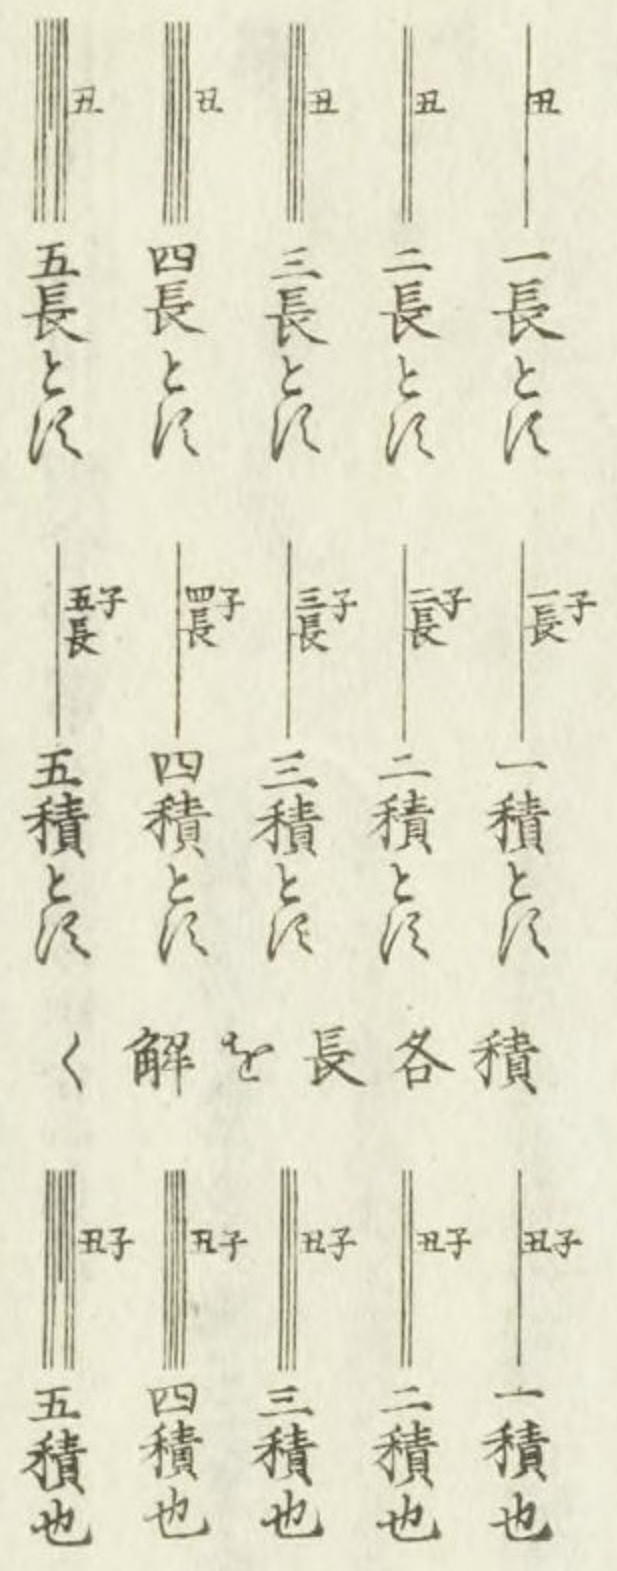 丑 一長とす
丑 二長とす
丑 三長とす
丑 四長とす
丑 五長とす
子 一長 一積とす
子 二長 二積とす
子 三長 三積とす
子 四長 四積とす
子 五長 五積とす
積各長を解く
子丑 一積也
子丑 二積也
子丑 三積也
子丑 四積也
子丑 五積也